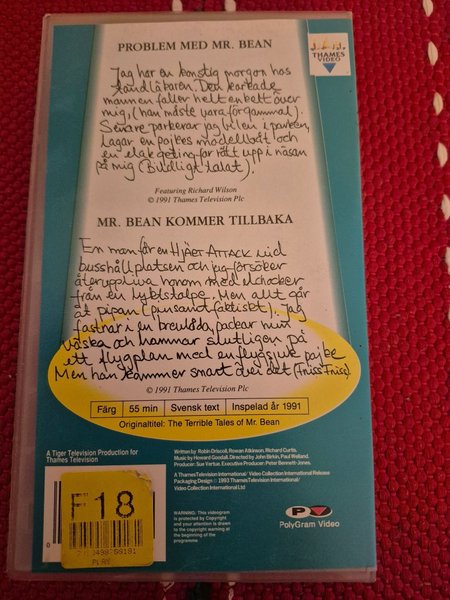 PROBLEM MED MR. BEAN
THAMES
VIDEO
Jag har en konstig morgon hos
tandläkaren. Den korkade
mannen faller helt enkelt över
mig, (han måste vara förgammal).
Senare parkerar jag bilen i parken,
lagar en pojkes modellbåt och
en elak geting far rätt upp i näsan
på mig (Bildligt talat).
Featuring Richard Wilson
© 1991 Thames Television Plc
MR. BEAN KOMMER TILLBAKA
En man får en HJÄRT ATTACK vid
busshållplatsen och jag försöker
återuppliva honom med elchocker
från en lyktstolpe. Men allt går
åt pipan (runsant faktiskt). Jag
fastnar i en brevlåda, packar min
väska och hamnar slutligen på
ett flygplan med en flygsjuk pojke
Men han kommer snart över det (Friss Friss).
© 1991 Thames Television Plc
Färg 55 min Svensk text Inspelad år 1991
Originaltitel: The Terrible Tales of Mr. Bean
A Tiger Television Production for
Thames Television
Written by Robin Driscoll, Rowan Atkinson, Richard Curtis.
Music by Howard Goodall. Directed by John Birkin, Paul Weiland.
Producer: Sue Vertue. Executive Producer: Peter Bennett-Jones.
A Thames Television International / Video Collection International Release
Packaging Design © 1993 Thames Television International/
Video Collection International Ltd
WARNING: This videogram
is protected by Copyright
and your attention is drawn
to the copyright warning at
the beginning of the
programme
F18
PLAY
PolyGram Video